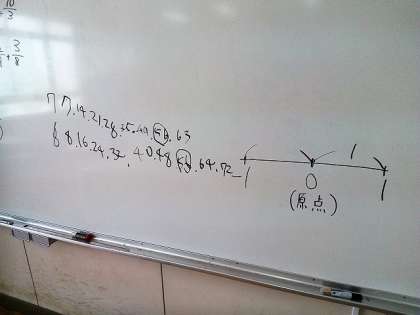 10/3
+3/8
7 7.14.21.28.35.49.56.63
8 8.16.24.32.40.48.56.64.72
-1 0 1 1
(原点)